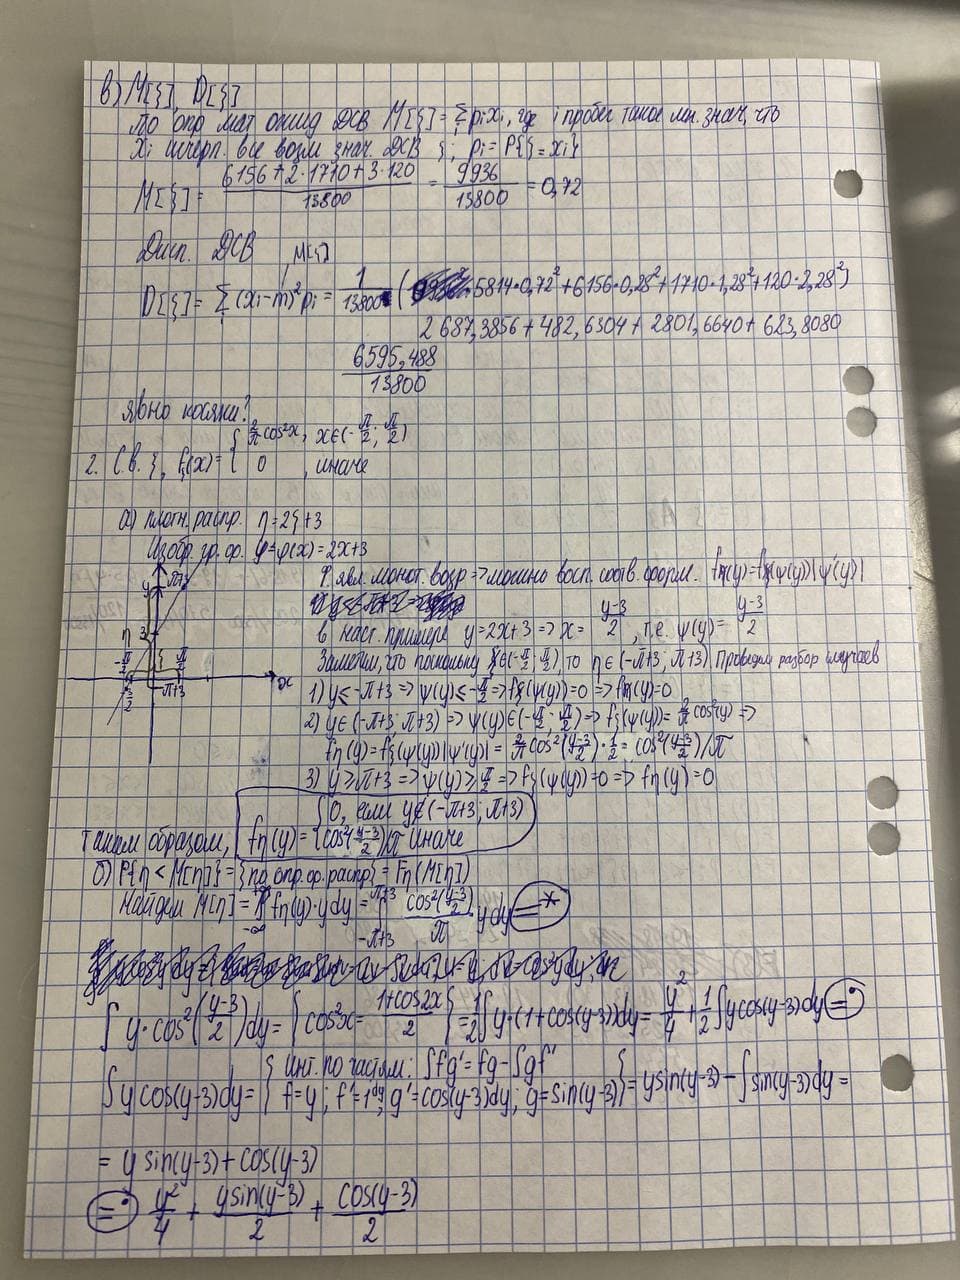 в) M[ξ], D[ξ]
По опр мат ожид ДСВ M[ξ] = Σ pᵢxᵢ, где i пробег такое мн. знач, что
xᵢ исчерп. все возм знач. ДСВ ξ; pᵢ = P{ξ = xᵢ}
M[ξ] = (6156 + 2·1710 + 3·120)/13800 = 9936/13800 = 0,72
Дисп. ДСВ M[ξ]
D[ξ] = Σ (xᵢ-m)² pᵢ = 1/13800 (5814·0,72² + 6156·0,28² + 1710·1,28² + 120·2,28²)
2687,3856 + 482,6304 + 2801,6640 + 623,8080
6595,488/13800
явно косяки?
2. С.в. ξ, fξ(x) = { 2/π cos²x, x∈(-π/2; π/2)
0, иначе
а) плотн. распр. η = 2ξ+3
Изобр. гр. ф. y=φ(x) = 2x+3
y π+3 η 3 ξ -π/2 π/2 -3/2 π+3 x
φ явл. монот. возр => можно восп. соотв. форм. fη(y) = fξ(ψ(y))|ψ'(y)|
в наст. примере y = 2x+3 => x = (y-3)/2, т.е. ψ(y) = (y-3)/2
Заметим, что поскольку ξ∈(-π/2; π/2), то η∈(-π+3; π+3). Проведем разбор случаев
1) y ≤ -π+3 => ψ(y) ≤ -π/2 => fξ(ψ(y)) = 0 => fη(y) = 0
2) y∈(-π+3; π+3) => ψ(y)∈(-π/2; π/2) => fξ(ψ(y)) = 2/π cos²(y) =>
fη(y) = fξ(ψ(y))|ψ'(y)| = 2/π cos²((y-3)/2)·1/2 = cos²((y-3)/2)/π
3) y ≥ π+3 => ψ(y) ≥ π/2 => fξ(ψ(y)) = 0 => fη(y) = 0
Таким образом, fη(y) = { 0, если y∉(-π+3; π+3)
cos²((y-3)/2)/π иначе
б) P{η < M[η]} = {по опр. ф. распр} = Fη(M[η])
Найдем M[η] = ∫_{-∞}^{+∞} fη(y)·y dy = ∫_{-π+3}^{π+3} cos²((y-3)/2)/π · y dy =*
∫ y·cos²((y-3)/2)dy = {cos²x = (1+cos2x)/2} = 1/2 ∫ y·(1+cos(y-3))dy = y²/4 + 1/2 ∫ y cos(y-3)dy =•
∫ y cos(y-3)dy = { Инт. по частям: ∫fg' = fg - ∫gf'
f = y; f' = 1dy; g' = cos(y-3)dy; g = sin(y-3) } = y sin(y-3) - ∫ sin(y-3)dy =
= y sin(y-3) + cos(y-3)
=• y²/4 + y sin(y-3)/2 + cos(y-3)/2